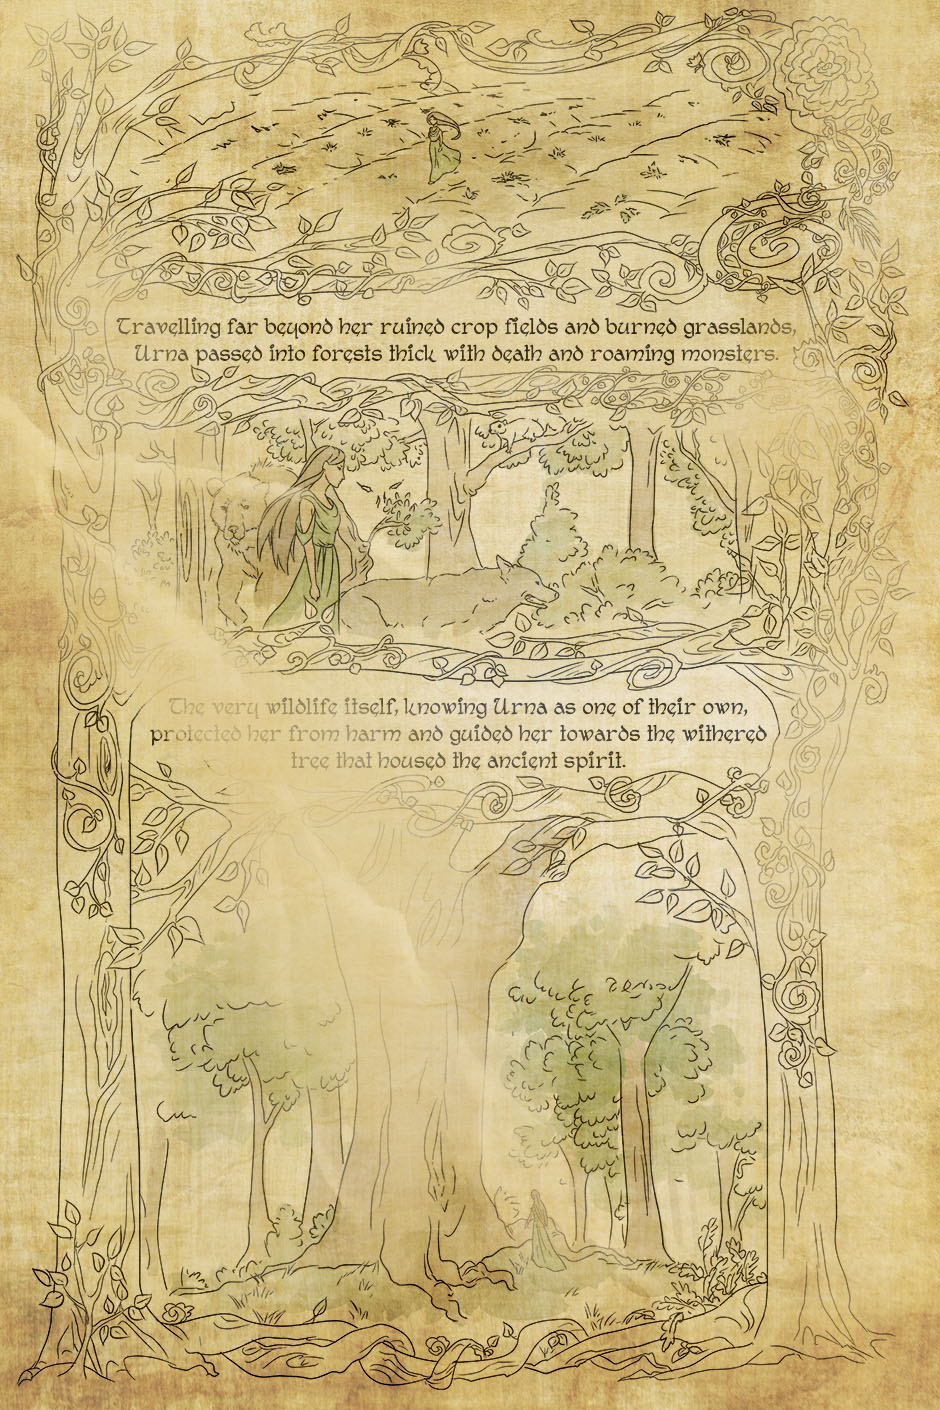 Travelling far beyond her ruined crop fields and burned grasslands,
Urna passed into forests thick with death and roaming monsters.
The very wildlife itself, knowing Urna as one of their own,
protected her from harm and guided her towards the withered
tree that housed the ancient spirit.